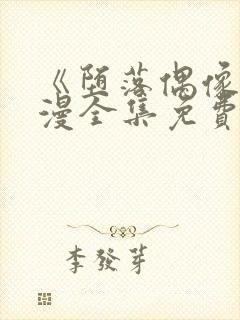 《堕落偶像
漫全集免費
李發芽